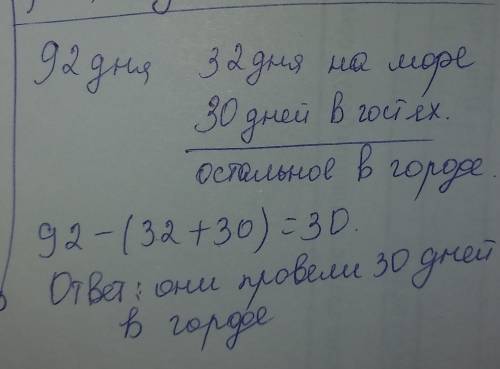 92 дня 32 дня на море
30 дней в гостях.
остальное в городе.
92-(32+30)=30.
Ответ: они провели 30 дней
в городе